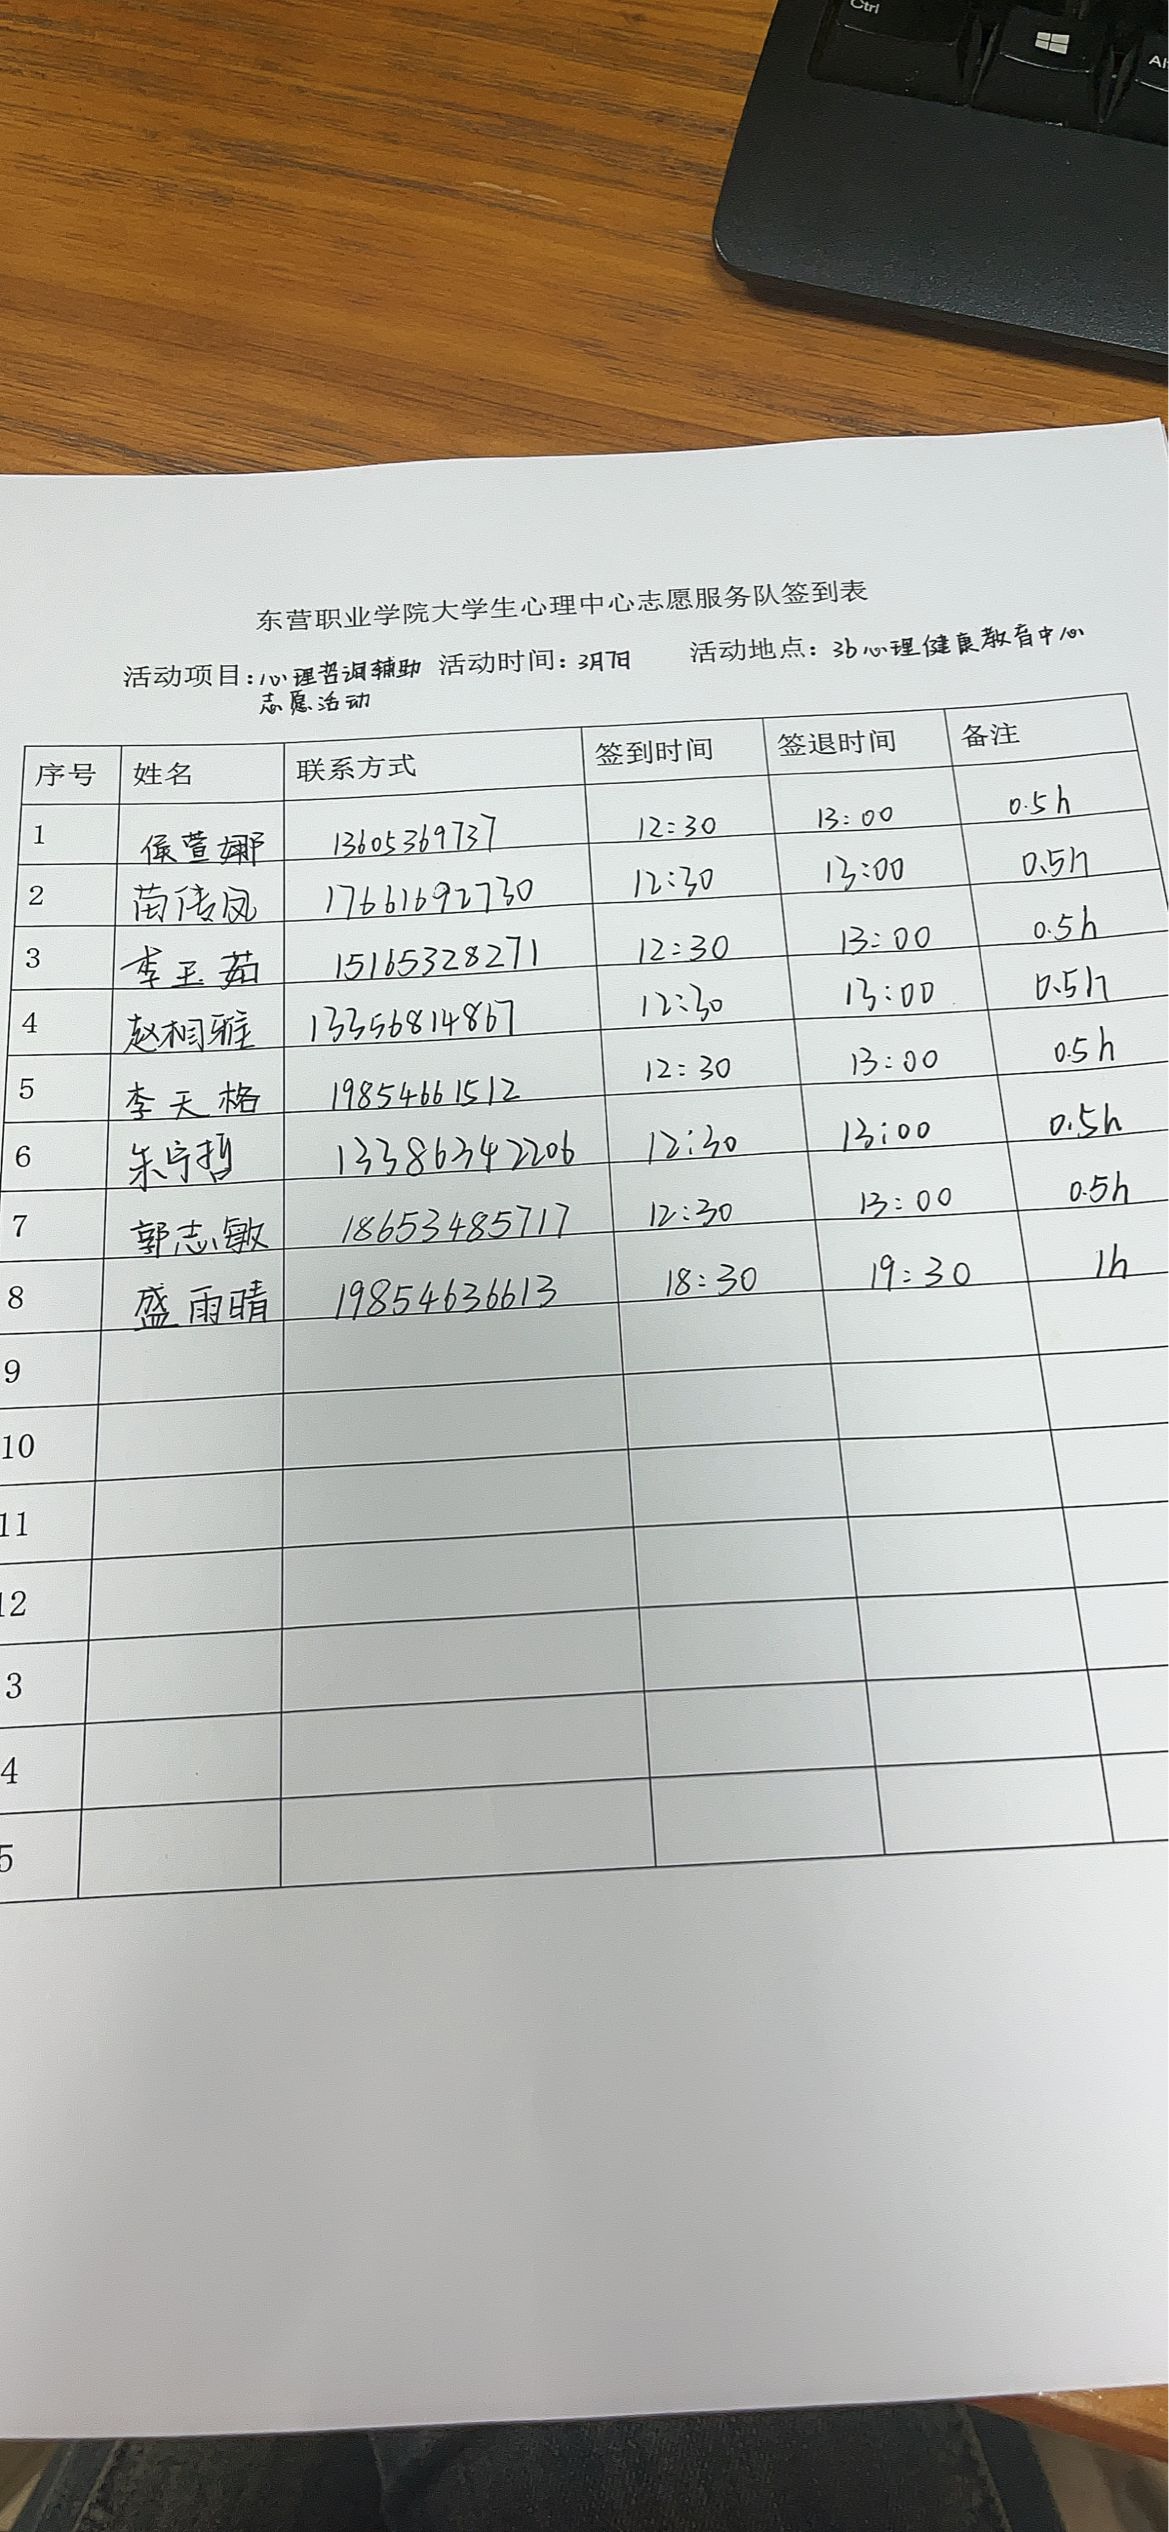 Ctrl
Al
东营职业学院大学生心理中心志愿服务队签到表
活动项目:心理咨询辅助 活动时间:3月7日 活动地点:3b心理健康教育中心
志愿活动
序号 姓名 联系方式 签到时间 签退时间 备注
1 侯萱娜 13605369737 12:30 13:00 0.5h
2 苗传凤 17661692730 12:30 13:00 0.5h
3 李玉茹 15165328271 12:30 13:00 0.5h
4 赵相雅 13356814867 12:30 13:00 0.5h
5 李天格 19854661512 12:30 13:00 0.5h
6 朱宁哲 13386342206 12:30 13:00 0.5h
7 郭志敏 18653485717 12:30 13:00 0.5h
8 盛雨晴 19854636613 18:30 19:30 1h
9
10
11
12
3
4
5